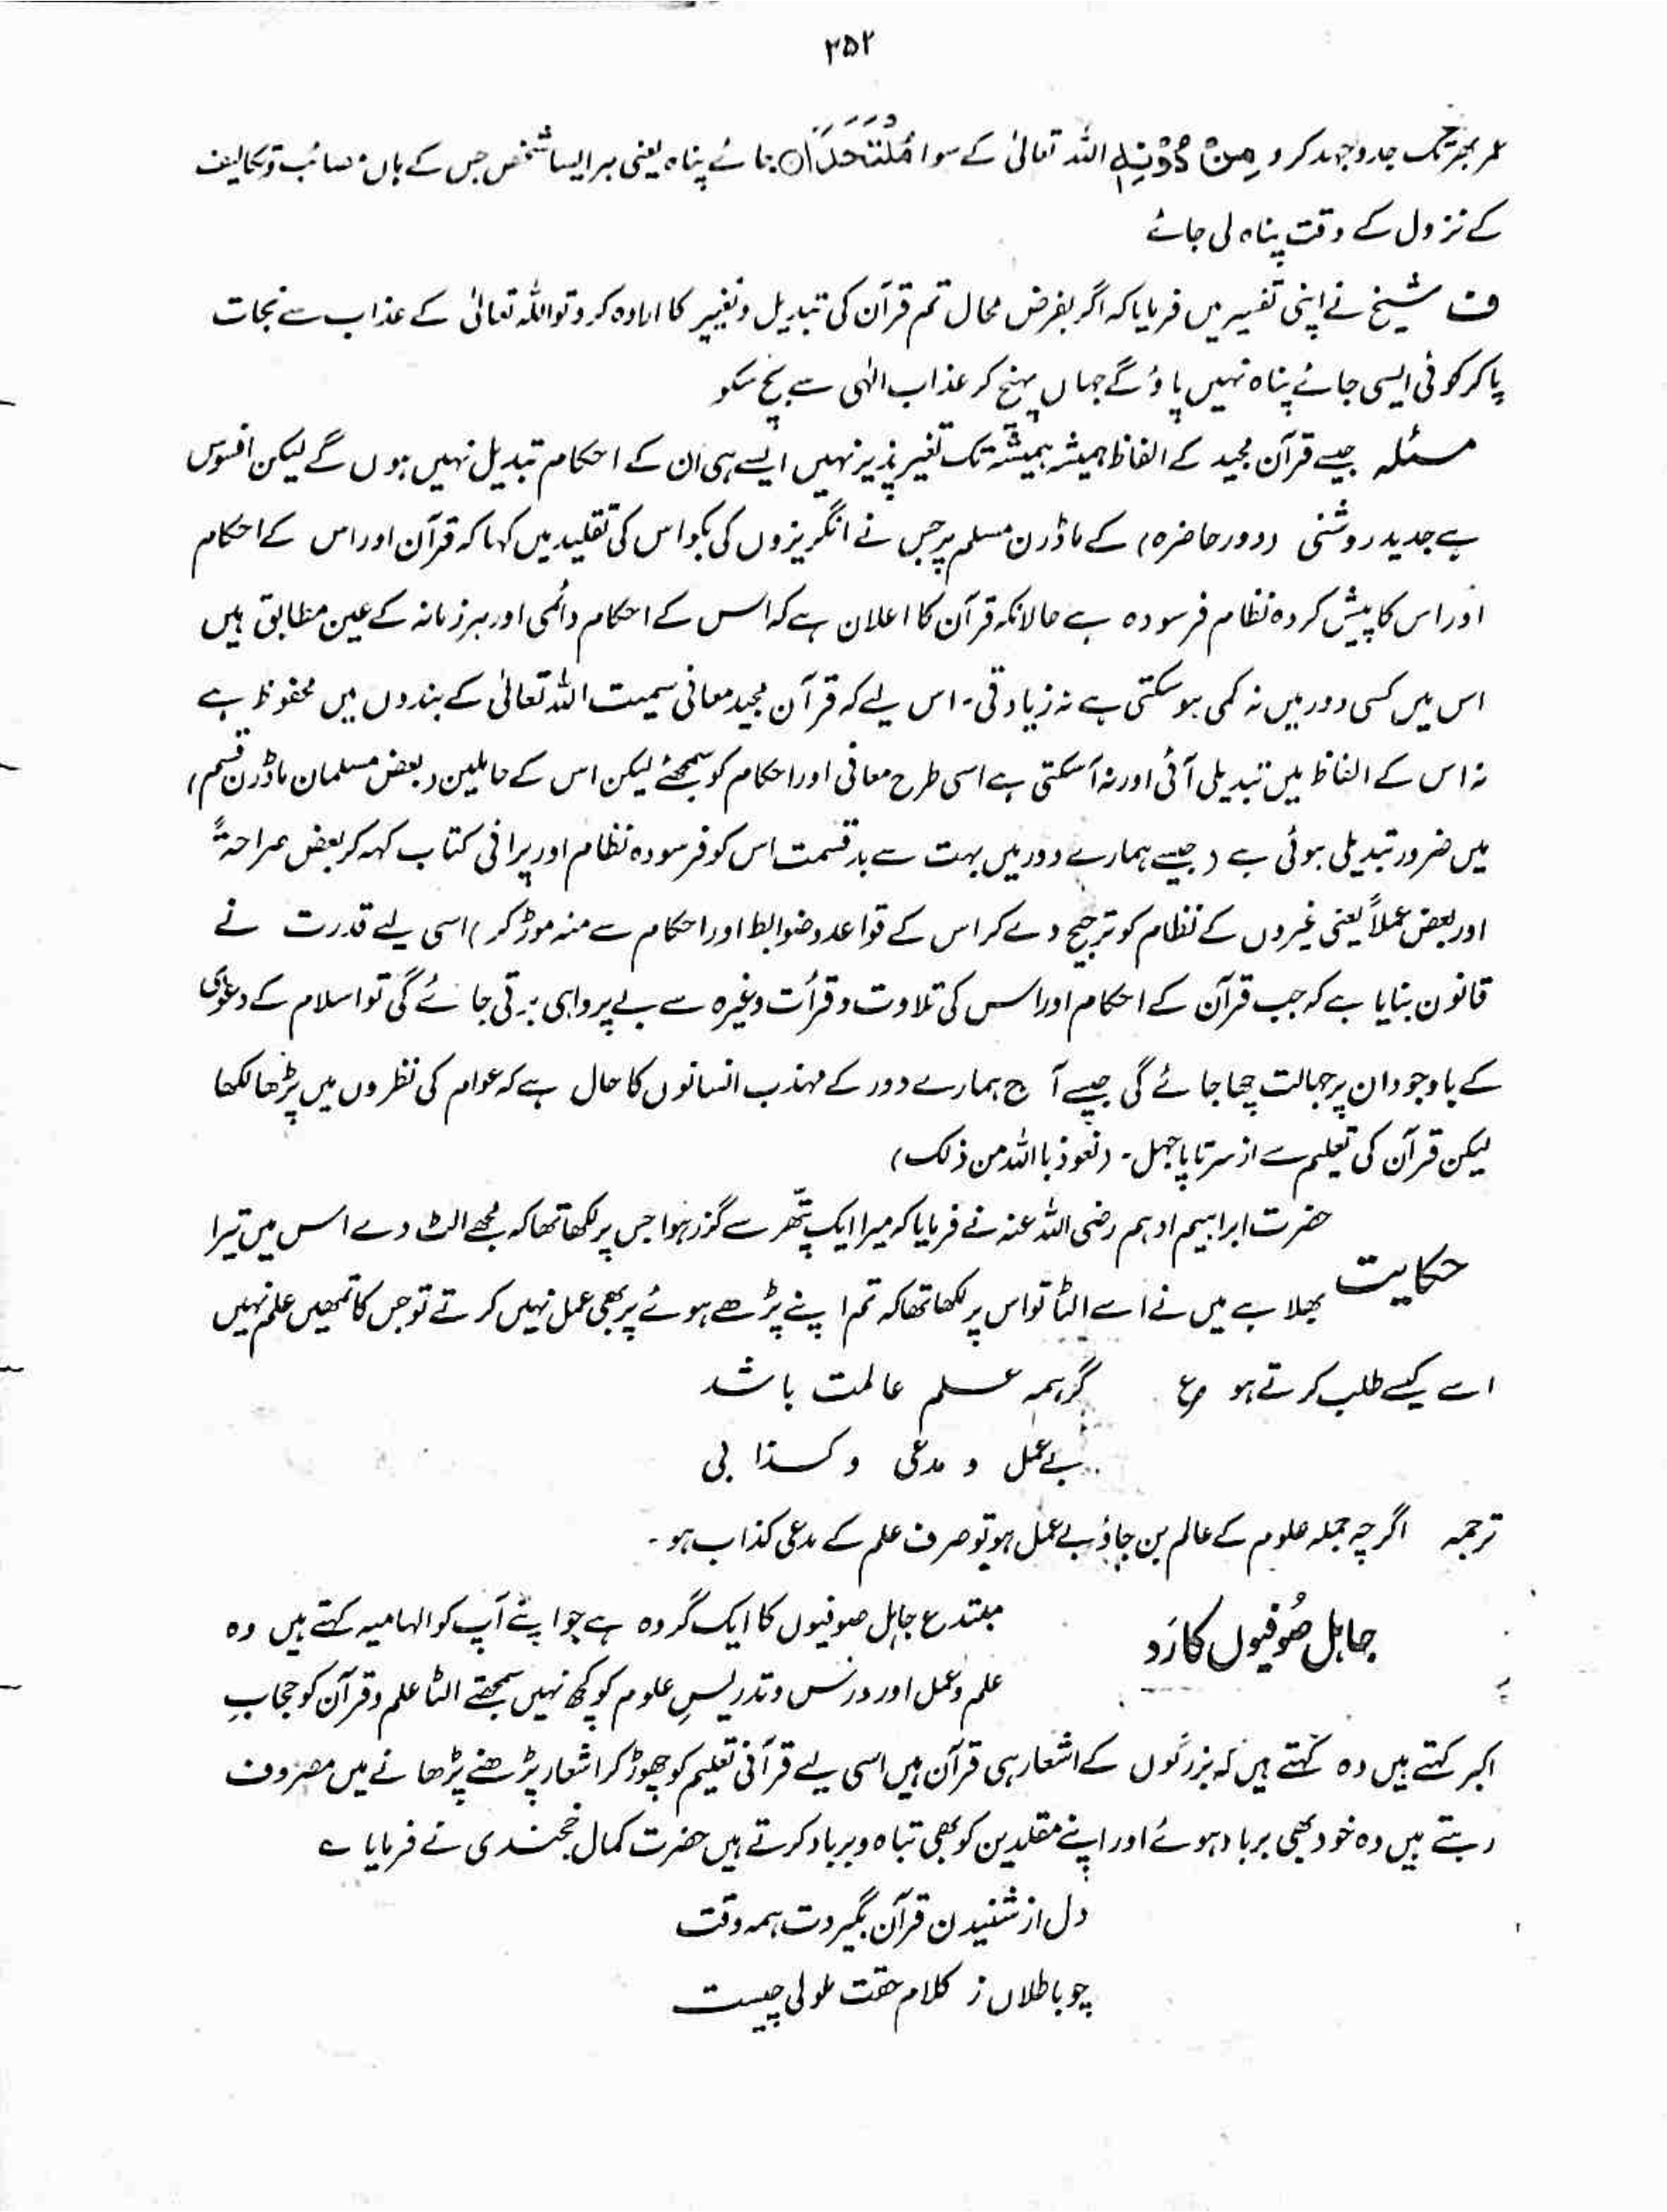 ۲۵۲
عمر بھر تک جدوجہد کرو مِنْ دُوْنِہٖ اللہ تعالیٰ کے سوا مُلْتَحَدًا○ جائے پناہ یعنی ہر ایسا شخص جس کے ہاں مصائب و تکالیف
کے نزول کے وقت پناہ لی جائے
ف شیخ نے اپنی تفسیر میں فرمایا کہ اگر بفرض محال تم قرآن کی تبدیل و تغییر کا ارادہ کرو تو اللہ تعالیٰ کے عذاب سے نجات
پا کر کوئی ایسی جائے پناہ نہیں پاؤ گے جہاں پہنچ کر عذاب الٰہی سے بچ سکو
مسئلہ جیسے قرآن مجید کے الفاظ ہمیشہ ہمیشہ تک تغیر پذیر نہیں ایسے ہی ان کے احکام تبدیل نہیں ہوں گے لیکن افسوس
ہے جدید روشنی (دور حاضرہ) کے ماڈرن مسلم پر جس نے انگریزوں کی بکواس کی تقلید میں کہا کہ قرآن اور اس کے احکام
اور اس کا پیش کردہ نظام فرسودہ ہے حالانکہ قرآن کا اعلان ہے کہ اس کے احکام دائمی اور ہر زمانہ کے عین مطابق ہیں
اس میں کسی دور میں نہ کمی ہو سکتی ہے نہ زیادتی۔ اس لیے کہ قرآن مجید معانی سمیت اللہ تعالیٰ کے بندوں میں محفوظ ہے
نہ اس کے الفاظ میں تبدیلی آئی اور نہ آسکتی ہے اسی طرح معانی اور احکام کو سمجھئے لیکن اس کے حاملین (بعض مسلمان ماڈرن قسم)
میں ضرور تبدیلی ہوئی ہے (جیسے ہمارے دور میں بہت سے بدقسمت اس کو فرسودہ نظام اور پرانی کتاب کہہ کر بعض صراحۃً
اور بعض عملاً یعنی غیروں کے نظام کو ترجیح دے کر اس کے قواعد و ضوابط اور احکام سے منہ موڑ کر) اسی لیے قدرت نے
قانون بنایا ہے کہ جب قرآن کے احکام اور اس کی تلاوت و قرأت وغیرہ سے بے پرواہی برتی جائے گی تو اسلام کے دعوٰی
کے باوجود ان پر جہالت چھا جائے گی جیسے آج ہمارے دور کے مہذب انسانوں کا حال ہے کہ عوام کی نظروں میں پڑھا لکھا
لیکن قرآن کی تعلیم سے از سرتا پا جہل۔ (نعوذ باللہ من ذلک)
حضرت ابراہیم ادہم رضی اللہ عنہ نے فرمایا کہ میرا ایک پتھر سے گزر ہوا جس پر لکھا تھا کہ مجھے الٹ دے اس میں تیرا
حکایت
بھلا ہے میں نے اسے الٹا تو اس پر لکھا تھا کہ تم اپنے پڑھے ہوئے پر بھی عمل نہیں کرتے تو جس کا تمہیں علم نہیں
اسے کیسے طلب کرتے ہو ؏ گرہمہ علم عالمت باشد
بے عمل و مدعی و کذابی
ترجمہ اگرچہ جملہ علوم کے عالم بن جاؤ بے عمل ہو تو صرف علم کے مدعی کذاب ہو۔
جاہل صُوفیوں کا رَد
مبتدع جاہل صوفیوں کا ایک گروہ ہے جو اپنے آپ کو الہامیہ کہتے ہیں وہ
علم و عمل اور درس و تدریسِ علوم کو کچھ نہیں سمجھتے الٹا علم و قرآن کو حجابِ
اکبر کہتے ہیں وہ کہتے ہیں کہ بزرگوں کے اشعار ہی قرآن ہیں اسی لیے قرآنی تعلیم کو چھوڑ کر اشعار پڑھنے پڑھانے میں مصروف
رہتے ہیں وہ خود بھی برباد ہوئے اور اپنے مقلدین کو بھی تباہ و برباد کرتے ہیں حضرت کمال خجندی نے فرمایا ؎
دل از شنیدن قرآن بگیردت ہمہ وقت
چو باطلاں ز کلام حقت ملولی چیست